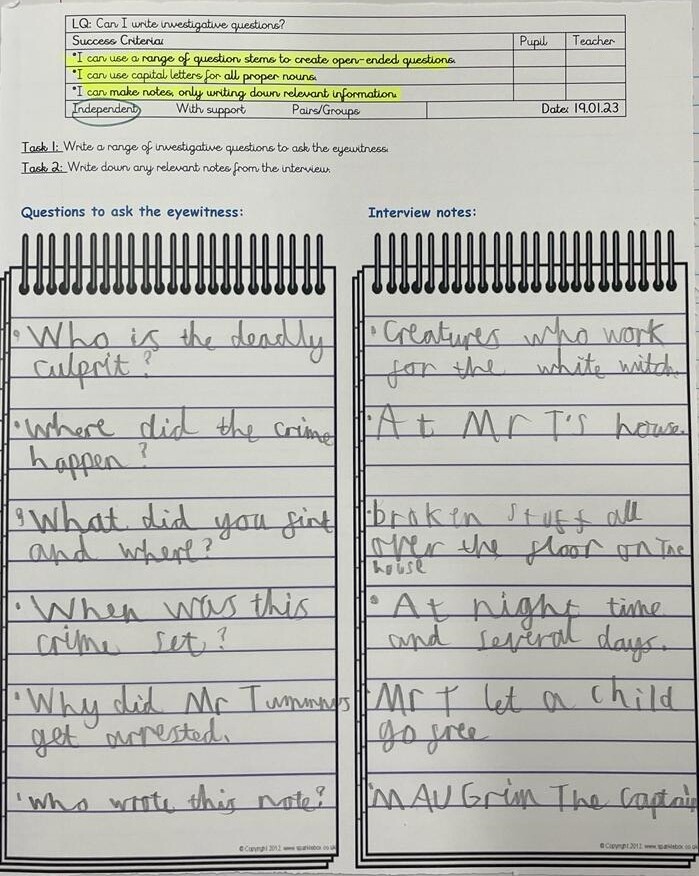 LQ: Can I write investigative questions?
Success Criteria: Pupil Teacher
*I can use a range of question stems to create open-ended questions.
*I can use capital letters for all proper nouns.
*I can make notes, only writing down relevant information.
Independent With support Pairs/Groups Date: 19.01.23
Task 1: Write a range of investigative questions to ask the eyewitness.
Task 2: Write down any relevant notes from the interview.
Questions to ask the eyewitness:
• Who is the deadly
culprit?
• Where did the crime
happen?
• What did you fint
and where?
• When was this
crime set?
• Why did Mr Tummnus
get arrested.
• who wrote this note?
© Copyright 2012 www.sparklebox.co.uk
Interview notes:
• Creatures who work
for the white witch.
• At Mr T's house.
• broken stuff all
over the floor on The
house
• At night time
and several days.
• Mr T let a child
go free
• MAUGrim The Captain
© Copyright 2012 www.sparklebox.co.uk